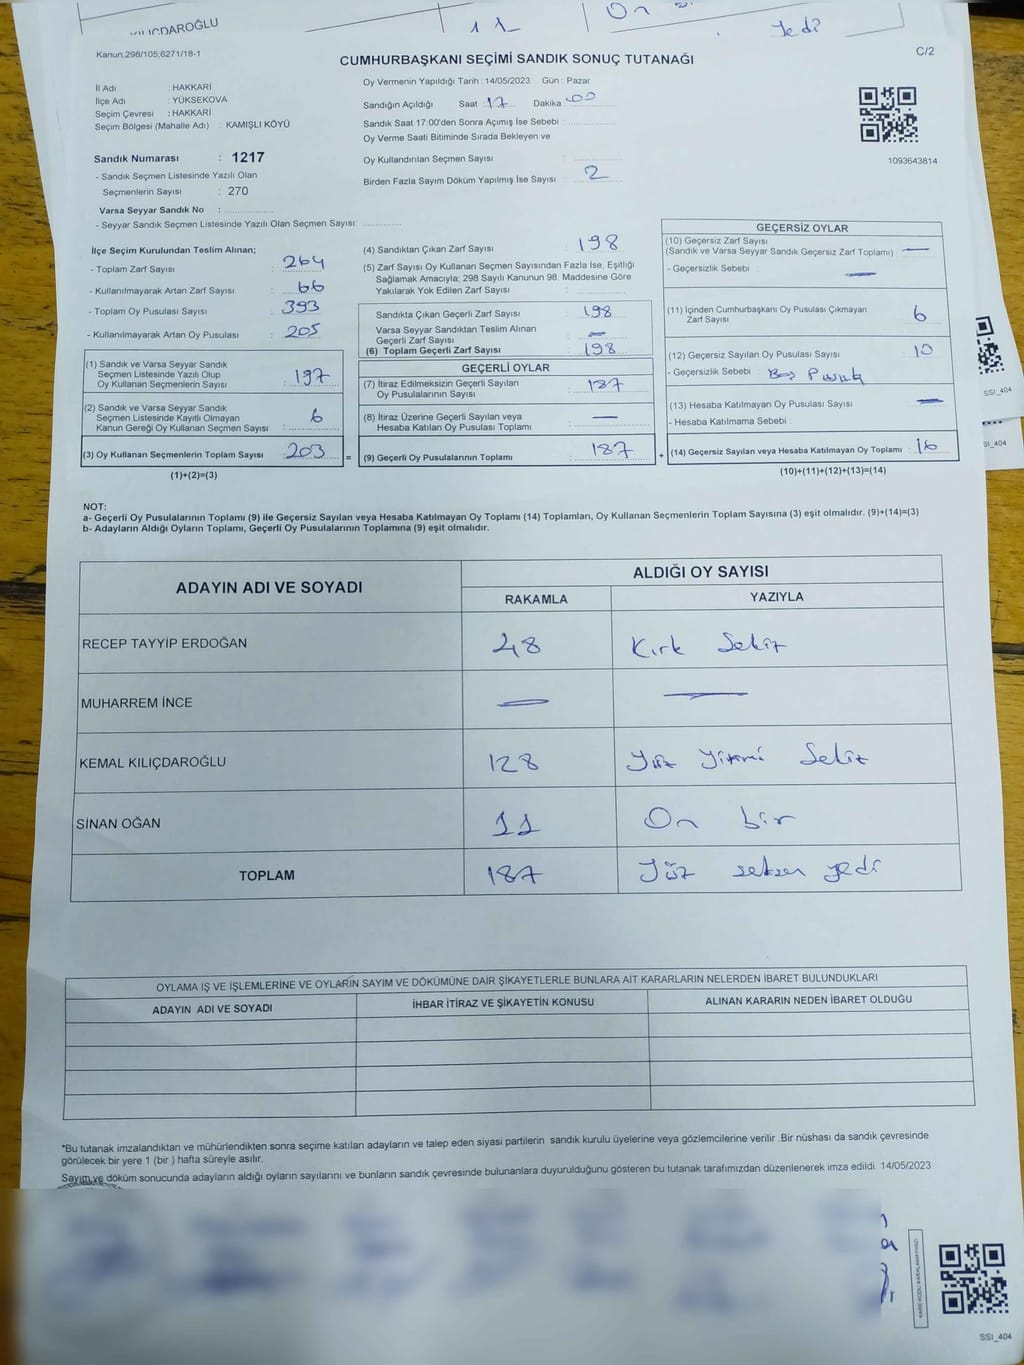 KILIÇDAROĞLU
11
On
Yedi
Kanun;298/105;6271/18-1
CUMHURBAŞKANI SEÇİMİ SANDIK SONUÇ TUTANAĞI
C/2
İl Adı : HAKKARİ
İlçe Adı : YÜKSEKOVA
Seçim Çevresi : HAKKARİ
Seçim Bölgesi (Mahalle Adı) : KAMIŞLI KÖYÜ
Sandık Numarası : 1217
- Sandık Seçmen Listesinde Yazılı Olan
Seçmenlerin Sayısı : 270
Varsa Seyyar Sandık No :
- Seyyar Sandık Seçmen Listesinde Yazılı Olan Seçmen Sayısı:
Oy Vermenin Yapıldığı Tarih :14/05/2023 Gün : Pazar
Sandığın Açıldığı Saat 17 Dakika 00
Sandık Saat 17:00'den Sonra Açımış İse Sebebi :
Oy Verme Saati Bitiminde Sırada Bekleyen ve
Oy Kullandırılan Seçmen Sayısı :
Birden Fazla Sayım Döküm Yapılmış İse Sayısı : 2
1093643814
İlçe Seçim Kurulundan Teslim Alınan;
- Toplam Zarf Sayısı : 264
- Kullanılmayarak Artan Zarf Sayısı : 66
- Toplam Oy Pusulası Sayısı : 393
- Kullanılmayarak Artan Oy Pusulası : 205
(1) Sandık ve Varsa Seyyar Sandık
Seçmen Listesinde Yazılı Olup
Oy Kullanan Seçmenlerin Sayısı : 197
(2) Sandık ve Varsa Seyyar Sandık
Seçmen Listesinde Kayıtlı Olmayan
Kanun Gereği Oy Kullanan Seçmen Sayısı : 6
(3) Oy Kullanan Seçmenlerin Toplam Sayısı : 203 =
(1)+(2)=(3)
(4) Sandıktan Çıkan Zarf Sayısı : 198
(5) Zarf Sayısı Oy Kullanan Seçmen Sayısından Fazla İse, Eşitliği
Sağlamak Amacıyla; 298 Sayılı Kanunun 98. Maddesine Göre
Yakılarak Yok Edilen Zarf Sayısı :
Sandıkta Çıkan Geçerli Zarf Sayısı : 198
Varsa Seyyar Sandıktan Teslim Alınan
Geçerli Zarf Sayısı : —
(6) Toplam Geçerli Zarf Sayısı : 198
GEÇERLİ OYLAR
(7) İtiraz Edilmeksizin Geçerli Sayılan
Oy Pusulalarının Sayısı : 187
(8) İtiraz Üzerine Geçerli Sayılan veya
Hesaba Katılan Oy Pusulası Toplamı : —
(9) Geçerli Oy Pusulalarının Toplamı : 187 +
GEÇERSİZ OYLAR
(10) Geçersiz Zarf Sayısı
(Sandık ve Varsa Seyyar Sandık Geçersiz Zarf Toplamı) : —
- Geçersizlik Sebebi : —
(11) İçinden Cumhurbaşkanı Oy Pusulası Çıkmayan
Zarf Sayısı : 6
(12) Geçersiz Sayılan Oy Pusulası Sayısı : 10
- Geçersizlik Sebebi : Boş Pusula
(13) Hesaba Katılmayan Oy Pusulası Sayısı : —
- Hesaba Katılmama Sebebi :
(14) Geçersiz Sayılan veya Hesaba Katılmayan Oy Toplamı : 16
(10)+(11)+(12)+(13)=(14)
SSI_404
SI_404
NOT:
a- Geçerli Oy Pusulalarının Toplamı (9) ile Geçersiz Sayılan veya Hesaba Katılmayan Oy Toplamı (14) Toplamları, Oy Kullanan Seçmenlerin Toplam Sayısına (3) eşit olmalıdır. (9)+(14)=(3)
b- Adayların Aldığı Oyların Toplamı, Geçerli Oy Pusulalarının Toplamına (9) eşit olmalıdır.
ADAYIN ADI VE SOYADI
ALDIĞI OY SAYISI
RAKAMLA YAZIYLA
RECEP TAYYİP ERDOĞAN 48 Kırk Sekiz
MUHARREM İNCE — —
KEMAL KILIÇDAROĞLU 128 Yüz Yirmi Sekiz
SİNAN OĞAN 11 On bir
TOPLAM 187 Yüz seksen yedi
OYLAMA İŞ VE İŞLEMLERİNE VE OYLARIN SAYIM VE DÖKÜMÜNE DAİR ŞİKAYETLERLE BUNLARA AİT KARARLARIN NELERDEN İBARET BULUNDUKLARI
ADAYIN ADI VE SOYADI İHBAR İTİRAZ VE ŞİKAYETİN KONUSU ALINAN KARARIN NEDEN İBARET OLDUĞU
*Bu tutanak imzalandıktan ve mühürlendikten sonra seçime katılan adayların ve talep eden siyasi partilerin sandık kurulu üyelerine veya gözlemcilerine verilir .Bir nüshası da sandık çevresinde
görülecek bir yere 1 (bir ) hafta süreyle asılır.
Sayım ve döküm sonucunda adayların aldığı oyların sayılarını ve bunların sandık çevresinde bulunanlara duyurulduğunu gösteren bu tutanak tarafımızdan düzenlenerek imza edildi. 14/05/2023
KARE KODU KARALAMAYINIZ!
SSI_404